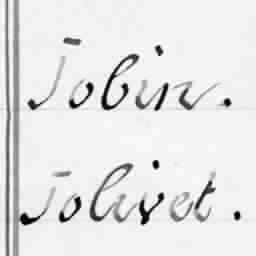 Tobin.
Tolivet.